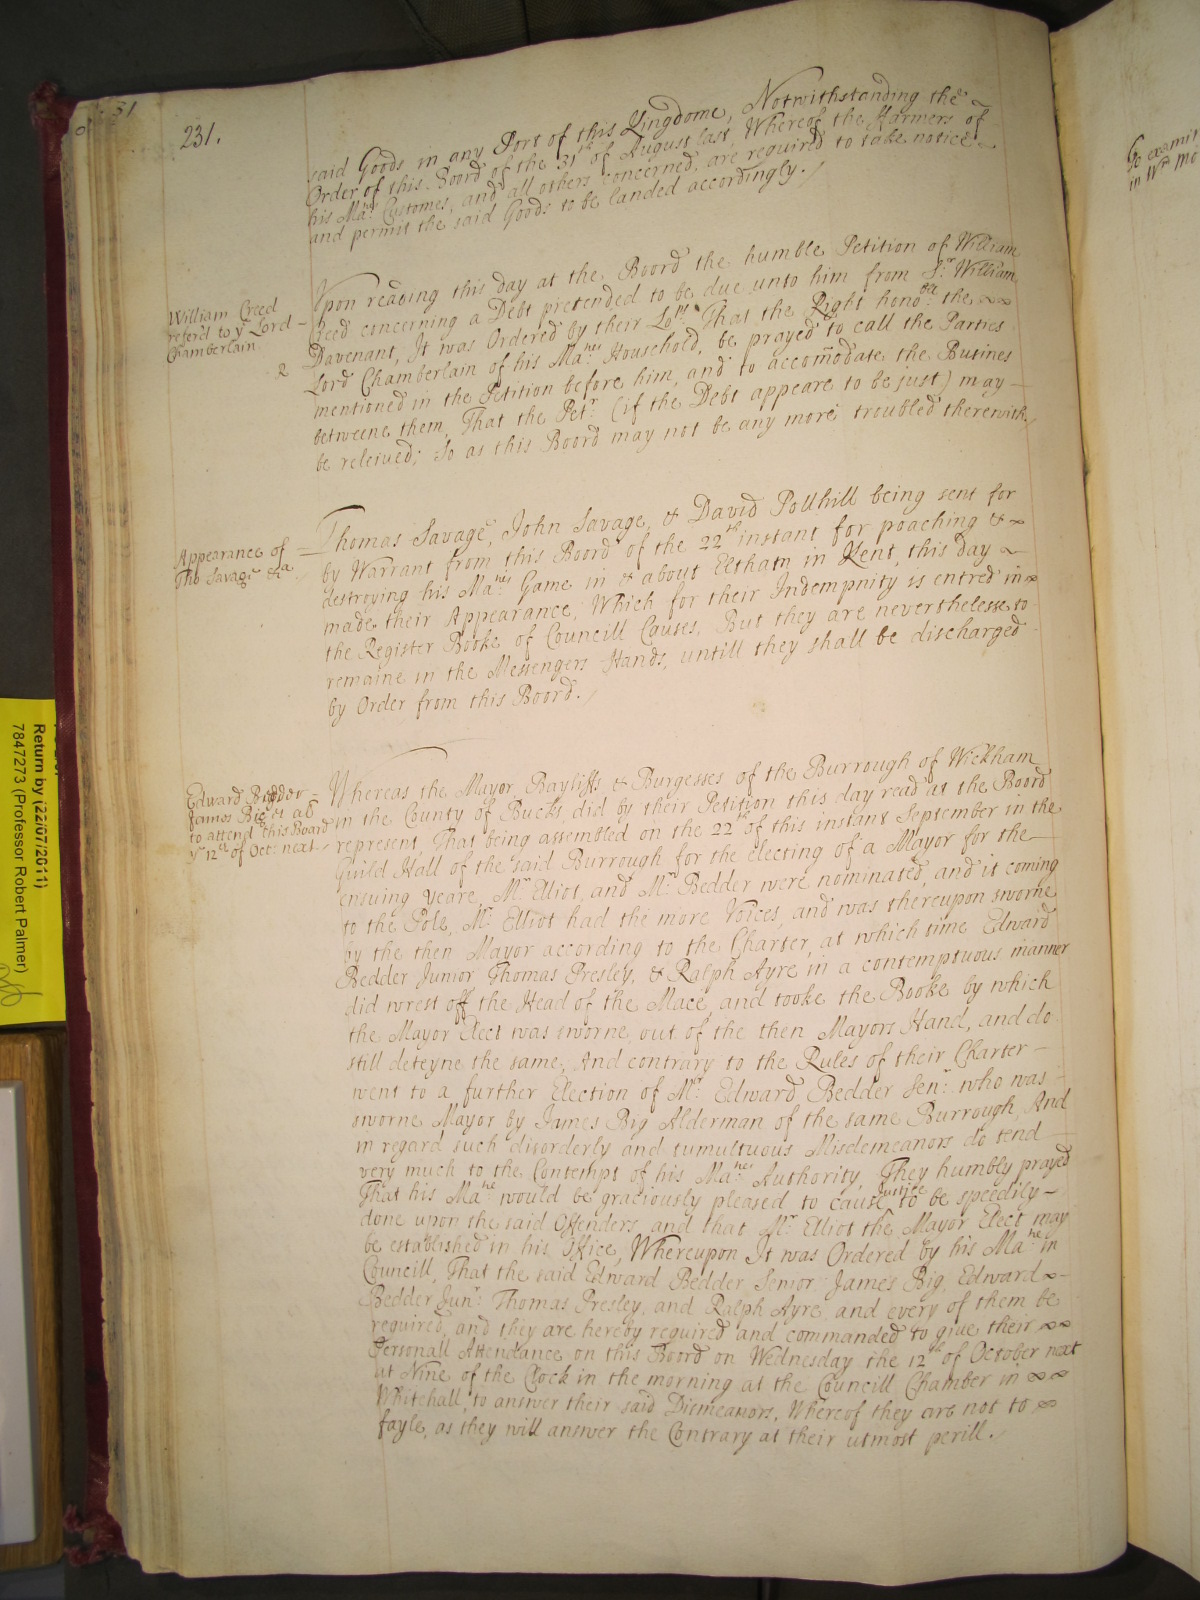 31
231.
said Goods in any Port of this Kingdome, Notwithstanding the
Order of this Board of the 31th of August last, Whereof the Farmers of
his Mats Customes, and all others concerned, are required to take notice
and permit the said Goods to be landed accordingly.
William Creed
refer'd to ye Lord
Chamberlain.
Upon reading this day at the Board the humble Petition of William
Creed concerning a Debt pretended to be due unto him from Sr William
Davenant, It was Ordered by their Lopps That the Right honoble the
Lord Chamberlain of his Mates Household, be prayed to call the Parties
mentioned in the Petition before him, and to accomodate the Busines
betweene them, That the Petr (if the Debt appeare to be just) may
be releived; So as this Board may not be any more troubled therewith.
Appearance of
Tho Savage &a
Thomas Savage, John Savage, & David Polhill being sent for
by Warrant from this Board of the 22th instant for poaching &
destroying his Mates Game in & about Eltham in Kent, this day
made their Appearance, Which for their Indempnity is entred in
the Register Booke of Councill Causes. But they are neverthelesse to
remaine in the Messengers Hands, untill they shall be discharged
by Order from this Board.
Edward Bedder
James Big et al
to attend this Board
ye 12th of Oct: next
Whereas the Mayor, Bayliffs & Burgesses of the Burrough of Wickham
in the County of Bucks, did by their Petition this day read at the Board
represent, That being assembled on the 22th of this instant September in the
Guild Hall of the said Burrough for the electing of a Mayor for the
ensuing yeare, Mr Elliot, and Mr Bedder were nominated, and it coming
to the Pole, Mr Elliot had the more Voices, and was thereupon sworne
by the then Mayor according to the Charter, at which time Edward
Bedder Junior Thomas Presley, & Ralph Ayre in a contemptuous manner
did wrest off the Head of the Mace, and tooke the Booke by which
the Mayor Elect was sworne out of the then Mayors Hand, and do
still deteyne the same, And contrary to the Rules of their Charter
went to a further Election of Mr Edward Bedder Senr. who was
sworne Mayor by James Big Alderman of the same Burrough, And
in regard such disorderly and tumultuous Misdemeanors do tend
very much to the Contempt of his Mates Authority, They humbly prayed
That his Mate would be graciously pleased to cause Justice to be speedily
done upon the said Offenders, and that Mr Elliot the Mayor Elect may
be established in his Office, Whereupon It was Ordered by his Mate in
Councill, That the said Edward Bedder Senior James Big, Edward
Bedder Junr. Thomas Presley, and Ralph Ayre, and every of them be
required, and they are hereby required and commanded to give their
Personall Attendance on this Board on Wednesday the 12th of October next
at Nine of the Clock in the morning at the Councill Chamber in
Whitehall, to answer their said Dismeanors, Whereof they are not to
fayle, as they will answer the Contrary at their utmost perill.
Return by (22/07/2011)
7847273 (Professor Robert Palmer)